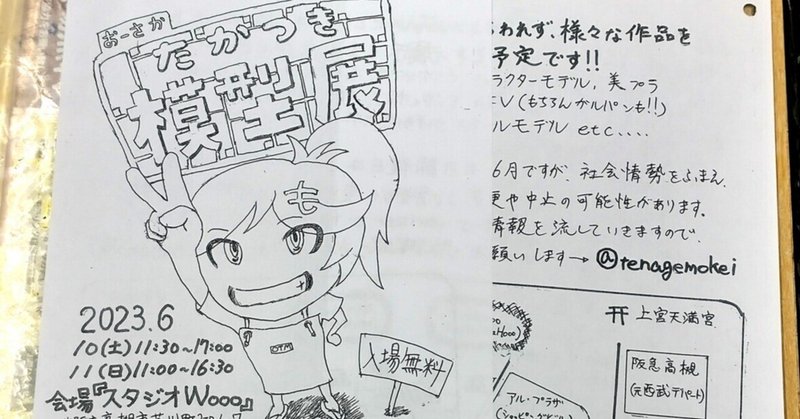 おーさか
たかつき
模型展
も
OTM
2023.6
10(土)11:30~17:00
11(日)11:00~16:30
会場『スタジオWooo』
入場無料
われず、様々な作品を
予定です!!
ラクターモデル, 美プラ
V(もちろんガルパンも!!)
ルモデル etc....
6月ですが、社会情勢をふまえ
更や中止の可能性があります。
情報を流していきますので、
願いします→@tenagemokei
上宮天満宮
阪急高槻
(元西武デパート)
アル・プラザ